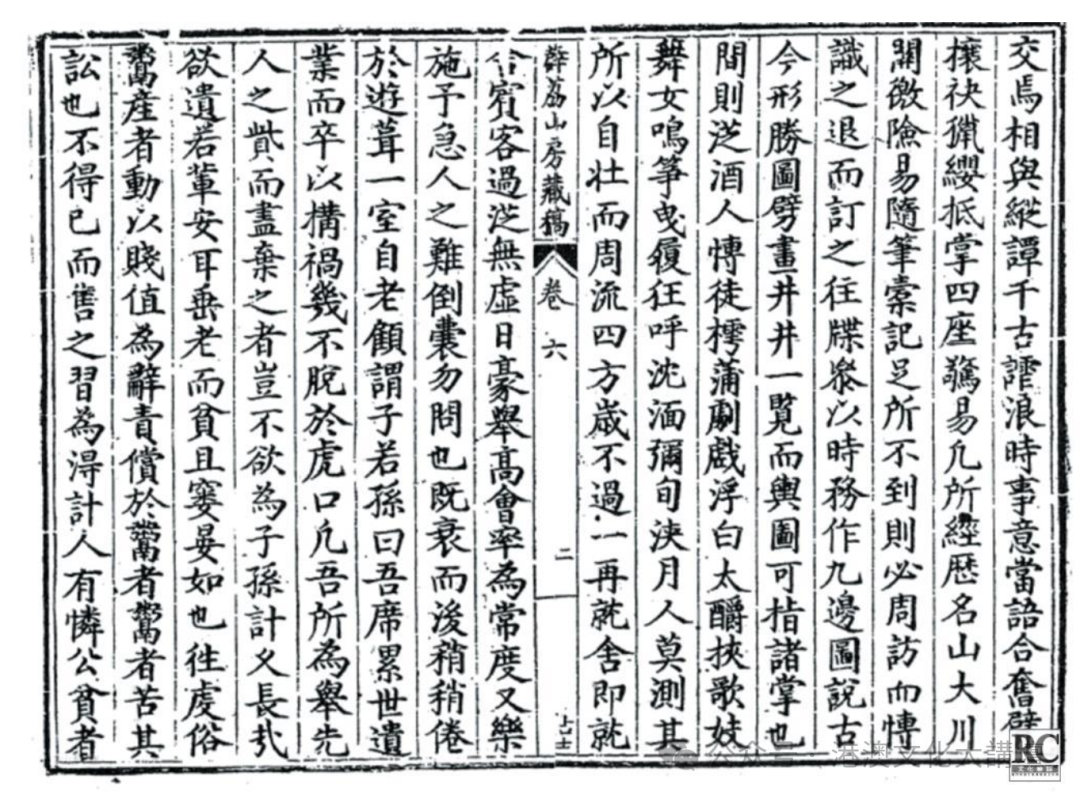 交焉相與縱譚千古謔浪時事意當語合奮臂
攘袂獵纓抵掌四座驚易凡所經歷名山大川
關徼險易隨筆橐記足所不到則必周訪而慱
識之退而訂之往牒叅以時務作九邊圖說古
今形勝圖劈畫井井一覽而輿圖可指諸掌也
間則從酒人慱徒樗蒲劇戲浮白太釂挾歌妓
舞女鳴箏曳履狂呼沈湎彌旬浹月人莫測其
所以自壯而周流四方歲不過一再就舍即就
薜荔山房藏稿 卷六 二
舍賓客過從無虛日豪舉高會率為常度又樂
施予急人之難倒囊勿問也既衰而後稍稍倦
於遊葺一室自老顧謂子若孫曰吾席累世遺
業而卒以搆禍幾不脫於虎口凡吾所為舉先
人之貲而盡棄之者豈不欲為子孫計乂長㢤
欲遺若輩安耳垂老而貧且窶晏如也徃處俗
鬻產者動以賤值為辭責償於鬻者鬻者苦其
訟也不得已而售之習為淂計人有憐公貧者
公众号 港澳文化大講
RC